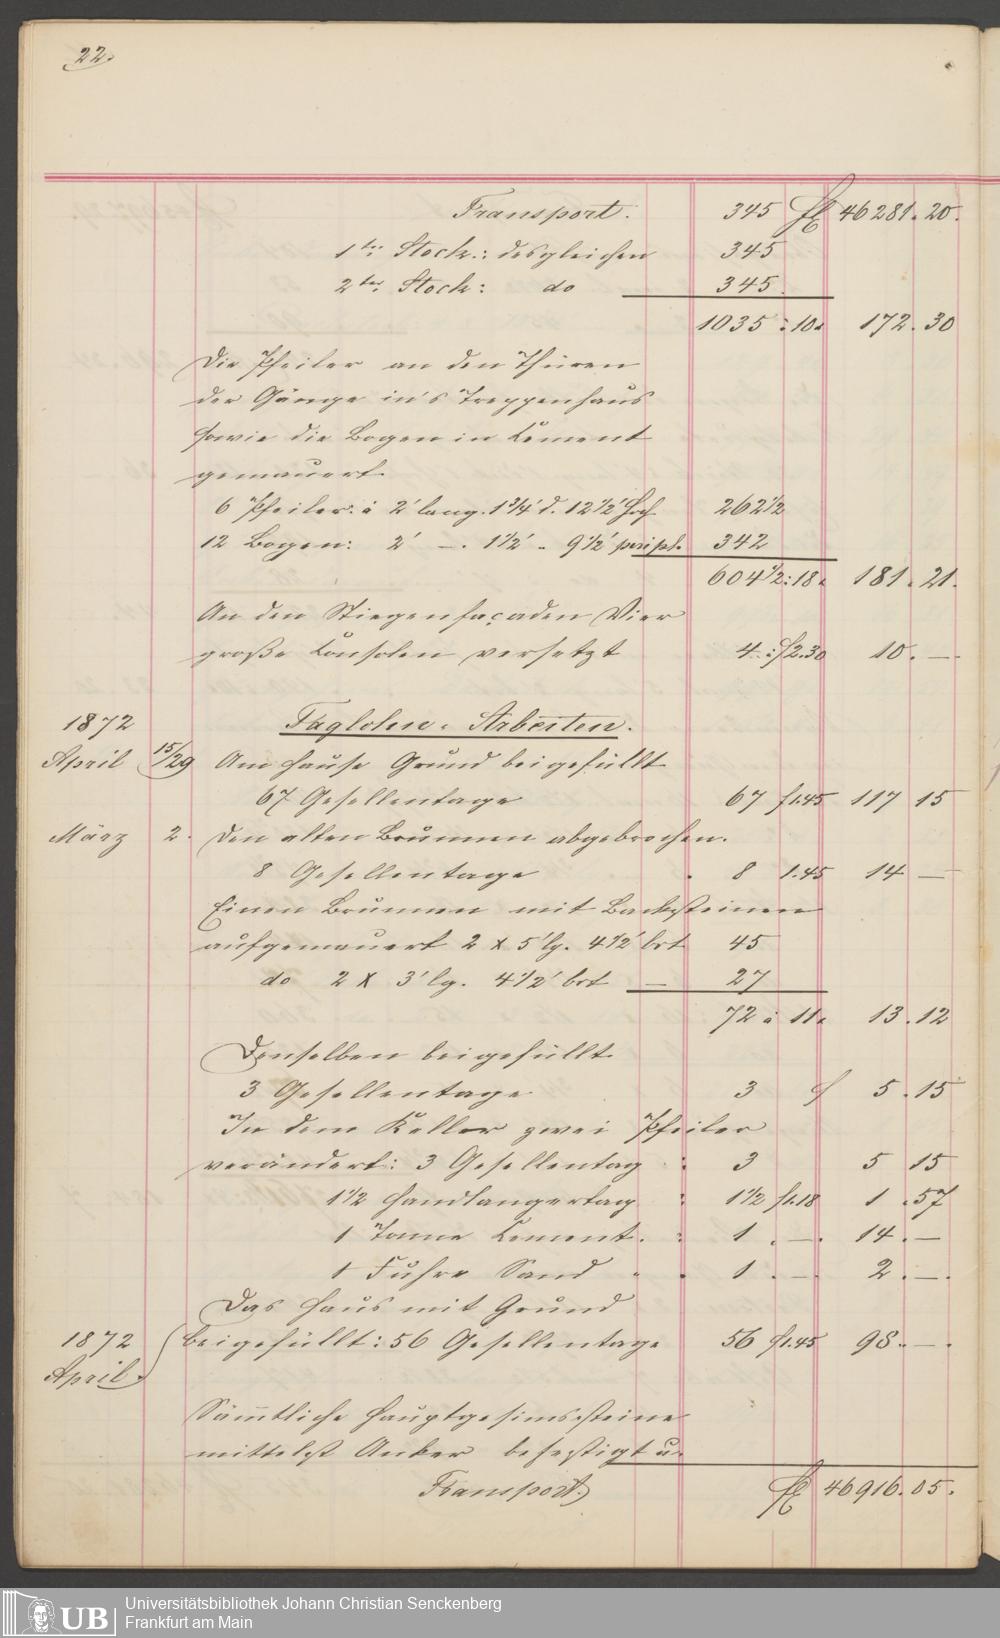 22.
Transport. 345 fl 46281. 20.
1ter Stock: desgleichen 345
2ter Stock: do 345.
1035 : 10. 172. 30
Die Pfeiler an den Thüren
der Gänge in's Treppenhaus
sowie die Bogen in Cement
gemauert.
6 Pfeiler: à 2' lang. 1 3/4' d. 12 1/2' Hoch 262 1/2
12 Bogen: 2' —. 1 1/2' „ 9 1/2' peripl. 342
604 1/2: 18. 181. 21.
An den Stiegenfaçaden Vier
große Consolen versetzt 4 : f2.30 10. —
1872 Taglohn-Arbeiten.
April 15/29 Am Hause Grund beigefüllt
67 Gesellentage 67 f1.45 117 15
März 2. Den alten Brunnen abgebrochen.
8 Gesellentage 8 1.45 14 —
Einen Brunnen mit Backsteinen
aufgemauert 2 x 5' lg. 4 1/2' brt 45
do 2 x 3' lg. 4 1/2' brt — 27
72 à 11. 13. 12
Denselben beigefüllt.
3 Gesellentage 3 f 5. 15
In dem Keller zwei Pfeiler
verändert: 3 Gesellentag : 3 5 15
1 1/2 Handlangertag : 1 1/2 f1.18 1 .57
1 Tonne Cement. : 1 . —. 14. —
1 Fuhre Sand " . 1 . —. 2. —.
Das Haus mit Grund
1872 beigefüllt: 56 Gesellentage 56 f1.45 98. —.
April.
Sämtliche Hauptgesimssteine
mittelst Anker befestigt u.
Transport. fl 46916. 05.
UB
Universitätsbibliothek Johann Christian Senckenberg
Frankfurt am Main